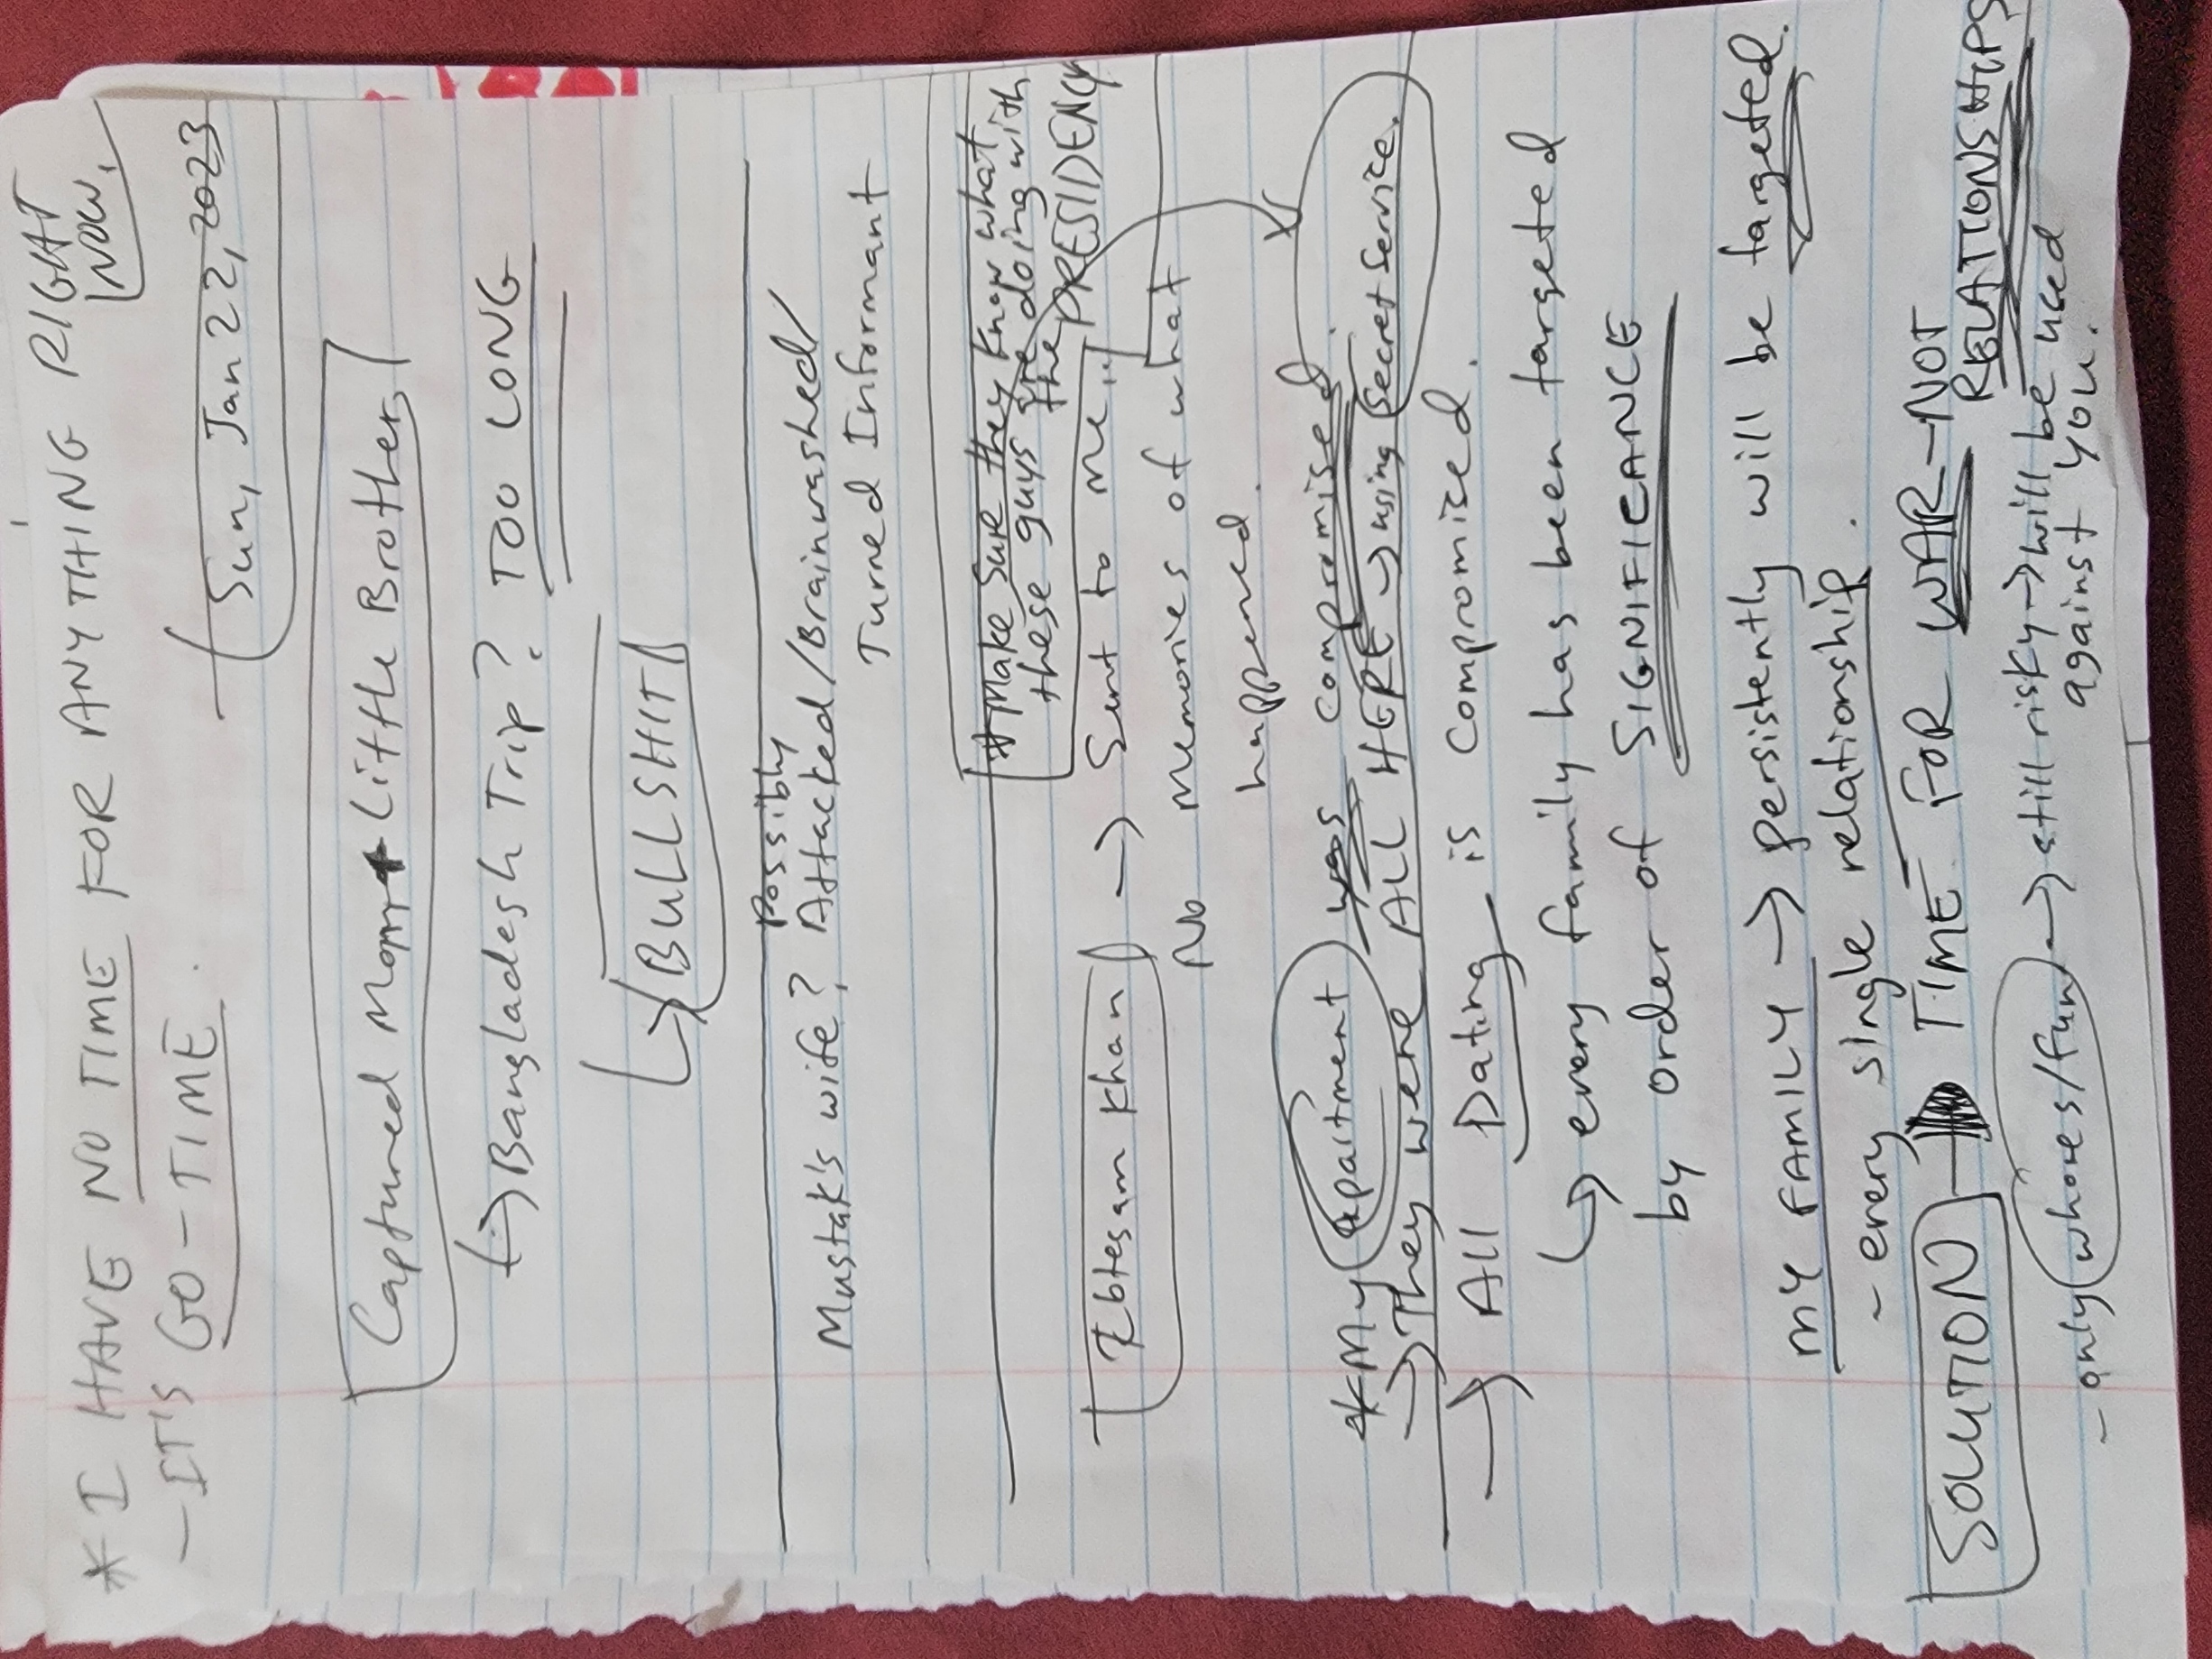 * I HAVE NO TIME FOR ANYTHING RIGHT NOW.
- IT'S GO-TIME.
Sun, Jan 22, 2023
Captured Mom + Little Brother
Bangladesh Trip? TOO LONG
BULLSHIT
Mustak's wife? Possibly Attacked/Brainwashed/
Turned Informant
* Make Sure they know what
these guys are doing with
the PRESIDENCY
Ebtesam Khan → Sent to me...
No memories of what
happened.
* My apartment was compromised.
→ They were ALL HERE → using Secret Service.
→ All Dating is compromised.
↳ every family has been targeted
by order of SIGNIFICANCE
MY FAMILY → persistently will be targeted.
- every single relationship.
SOLUTION → TIME FOR WAR - NOT
RELATIONSHIPS
- only whores/fun → still risky → will be used
against you.